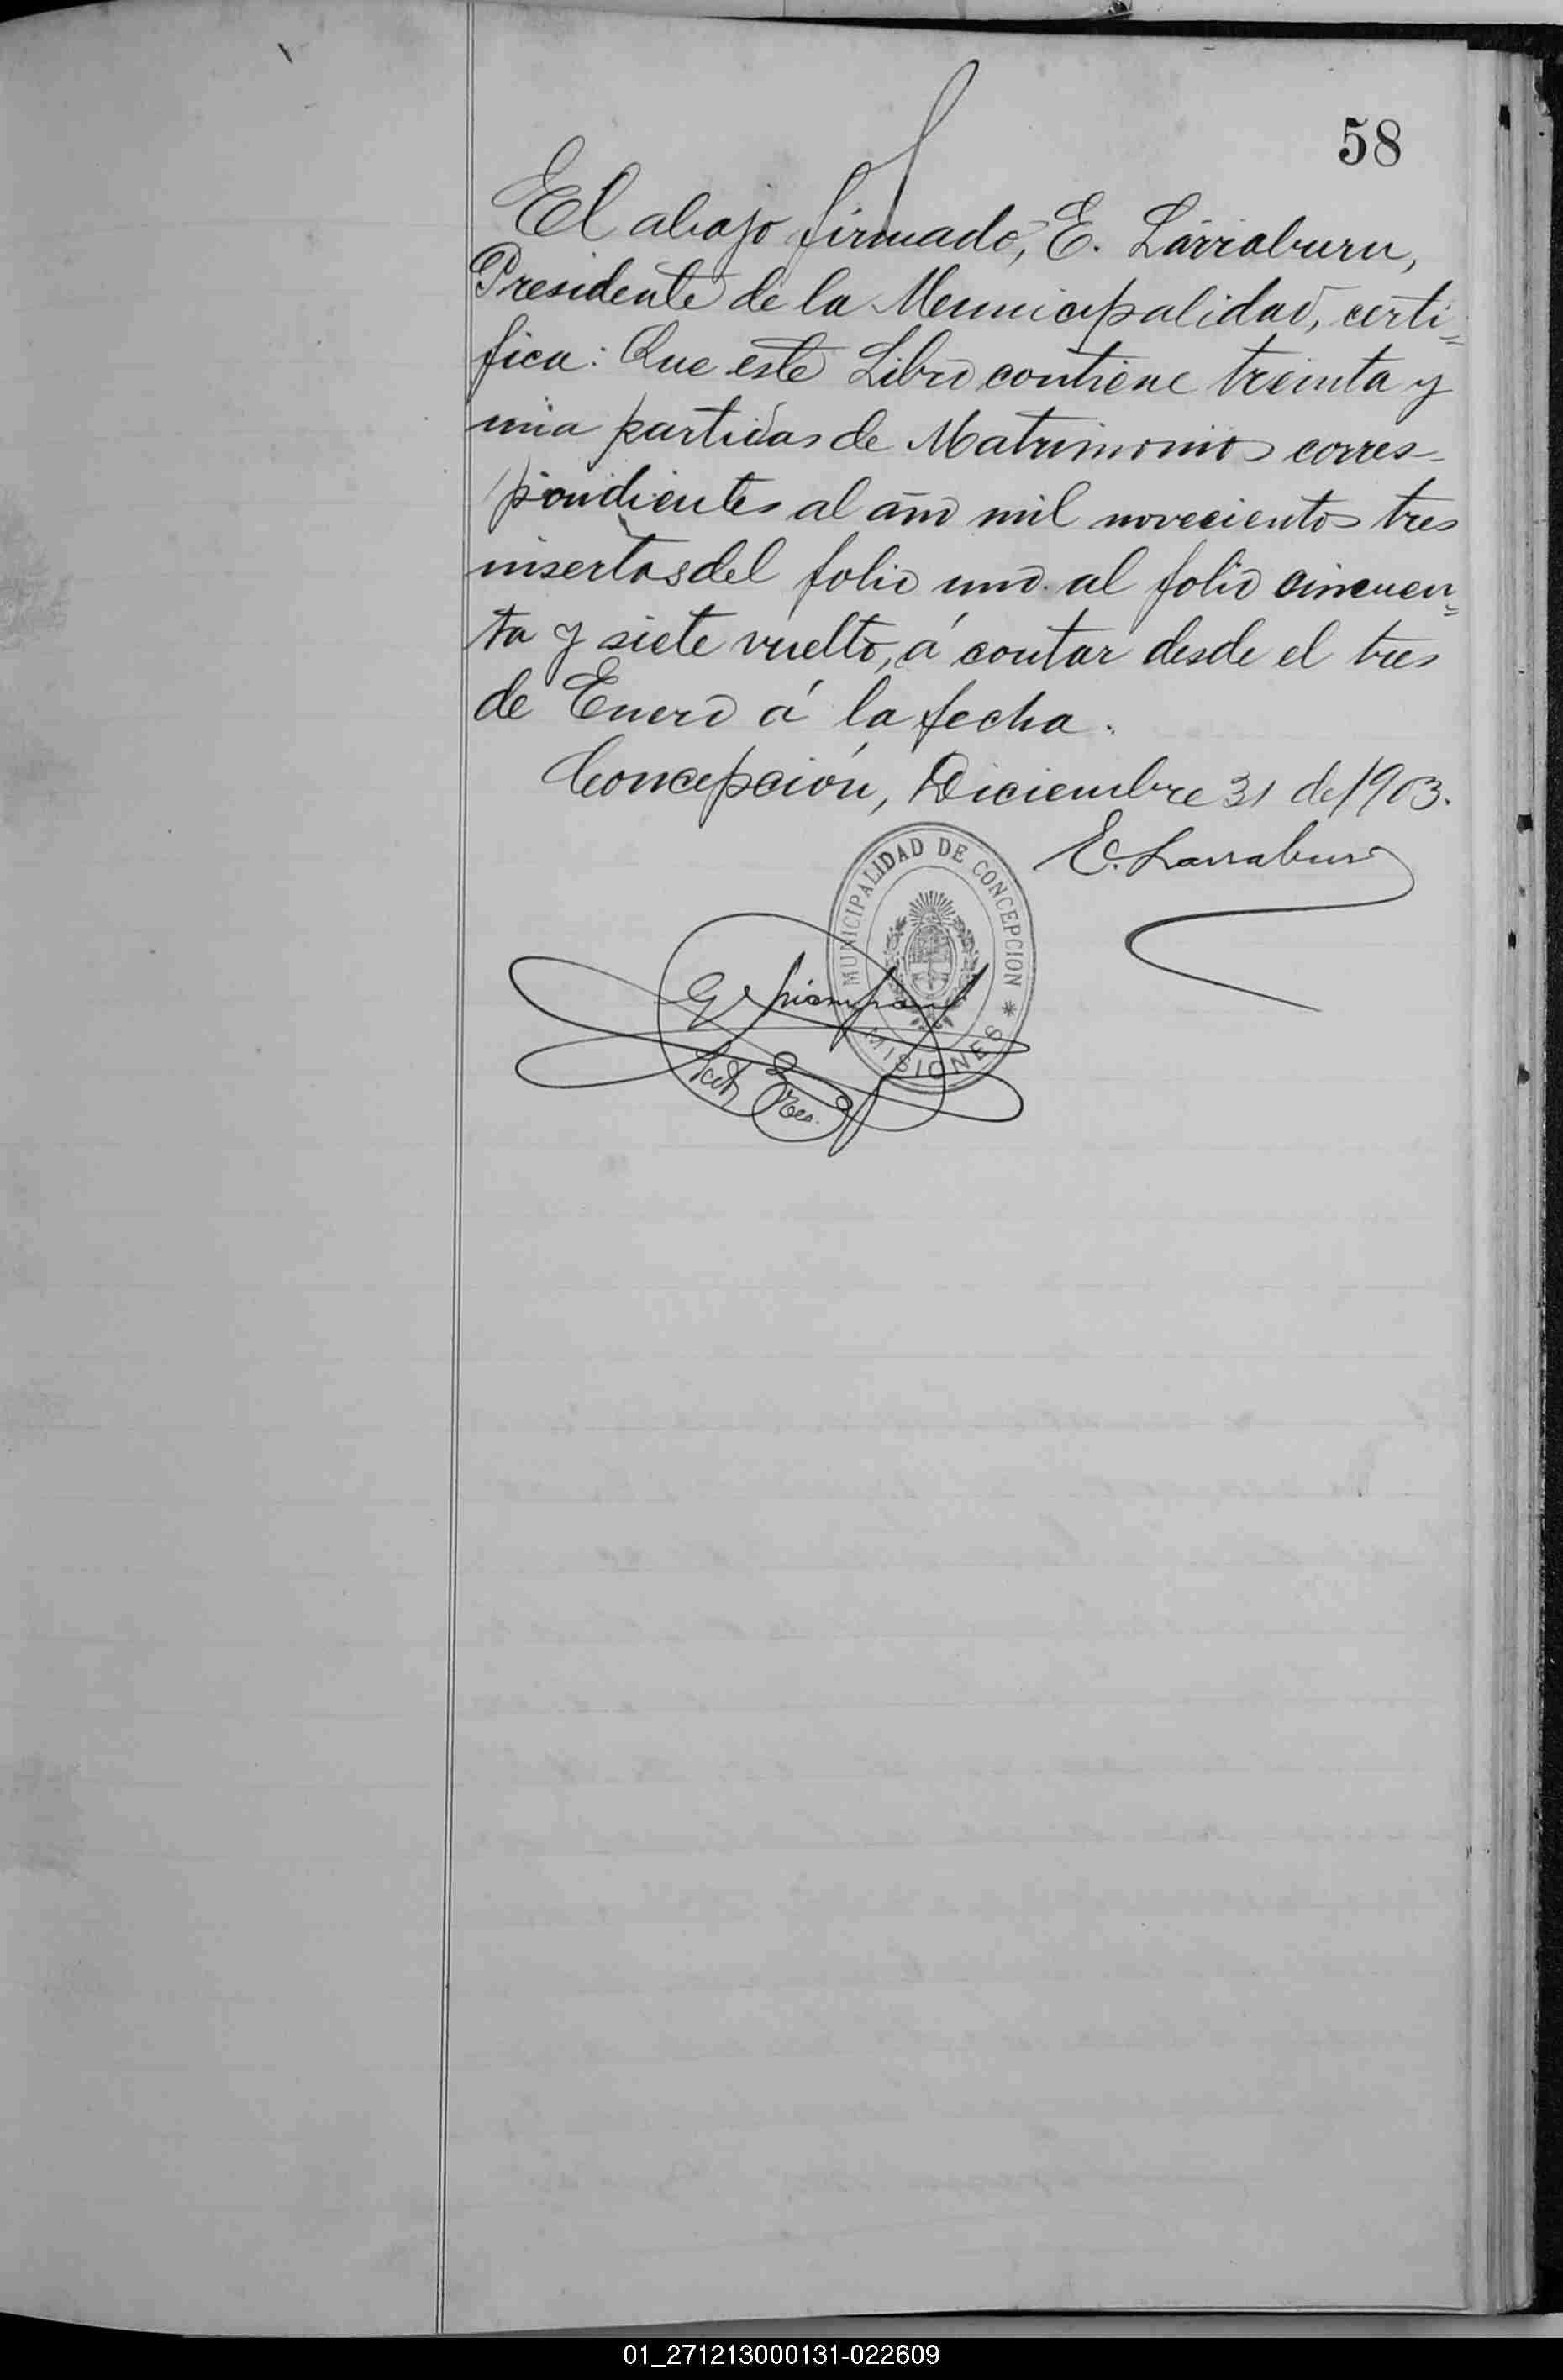 58
El abajo firmado, E. Larraburu,
Presidente de la Municipalidad, certi=
fica: Que este Libro contiene treinta y
una partidas de Matrimonios corres-
pondientes al año mil novecientos tres
insertas del folio uno al folio cincuen=
ta y siete vuelto, á contar desde el tres
de Enero á la fecha.
Concepción, Diciembre 31 de 1903.
E. Larraburu
MUNICIPALIDAD DE CONCEPCION *
MISIONES
01_271213000131-022609